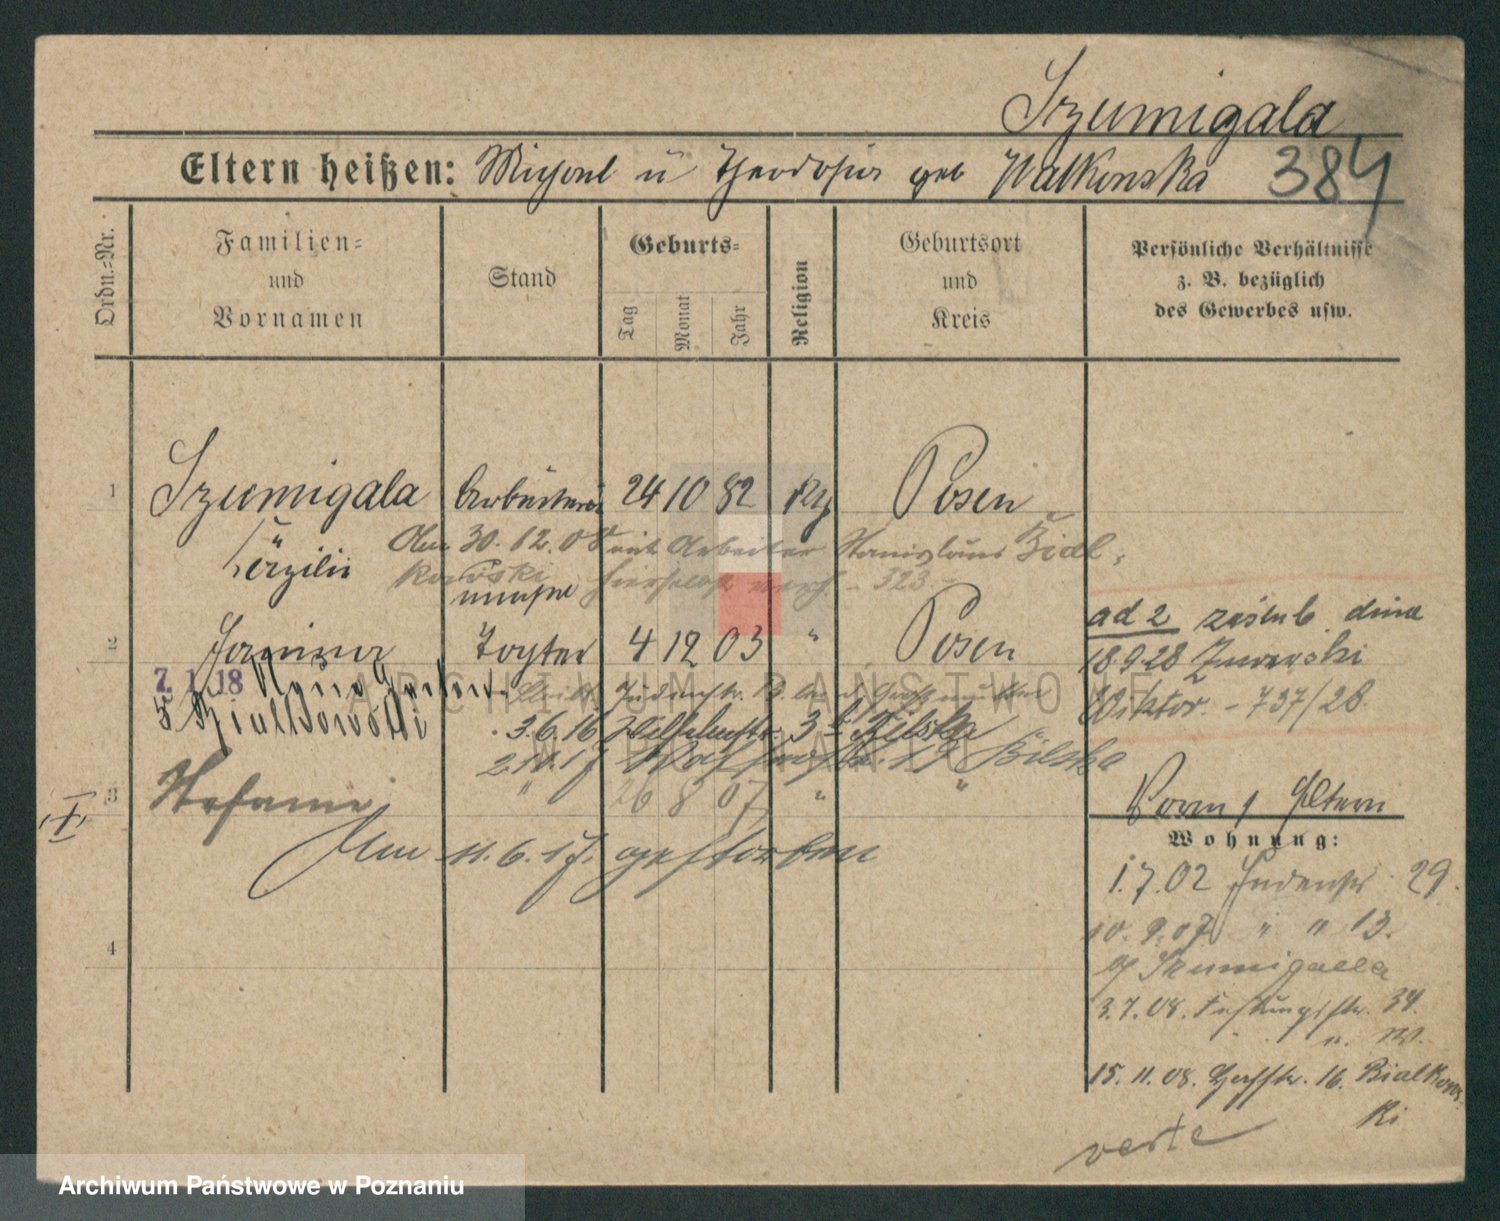 Szumigala
Eltern heißen: Michael u Theodosia geb Walkowska 384
Ordn.-Nr.
Familien-
und
Vornamen
Stand
Geburts-
Tag
Monat
Jahr
Religion
Geburtsort
und
Kreis
Persönliche Verhältnisse
z. B. bezüglich
des Gewerbes usw.
1 Szumigala Arbeiterin 24 10 82 Posen
Am 30. 12. 08 mit Arbeiter Stanislaus Bial-
Cäzilie kowski hierselbst - 323 -
2 Janina Tochter 4 12 03 " Posen
ad 2 zaślub. dnia
18.9.28 Żurowski
Wiktor. - 737/28.
7. 1. 18
Bialkowski 3.6.16 3 b. Bilska
2.11.17 19 Bilska
3 Stefanie " 26 8 07 " "
I
Am 11. 6. 17. gestorben
4
Eltern
Wohnung:
1.7.02 Judenstr. 29.
10. 9. 07 " " 13.
b/ Szumigalla
3.7.08. Festungsstr. 34.
15. 11. 08. 16. Bialkows-
ki
verte
ARCHIWUM PAŃSTWOWE
W POZNANIU
Archiwum Państwowe w Poznaniu